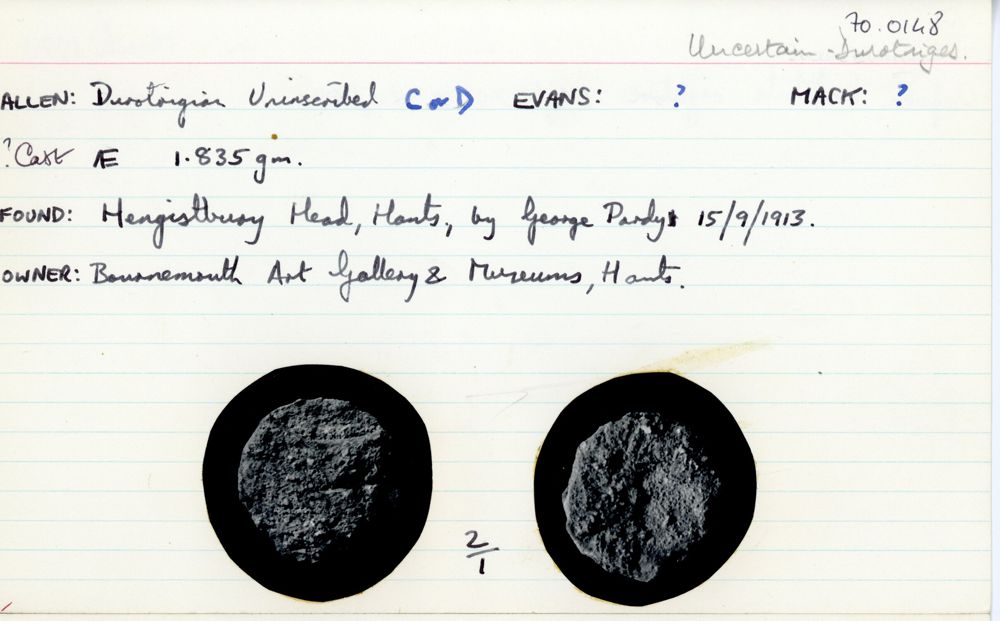 70.0148
Uncertain - Durotriges.
ALLEN: Durotrigian Uninscribed C or D EVANS: ? MACK: ?
?Cast Æ 1.835 gm.
FOUND: Hengistbury Head, Hants, by George Pardy 15/9/1913.
OWNER: Bournemouth Art Gallery & Museums, Hants.
2/1